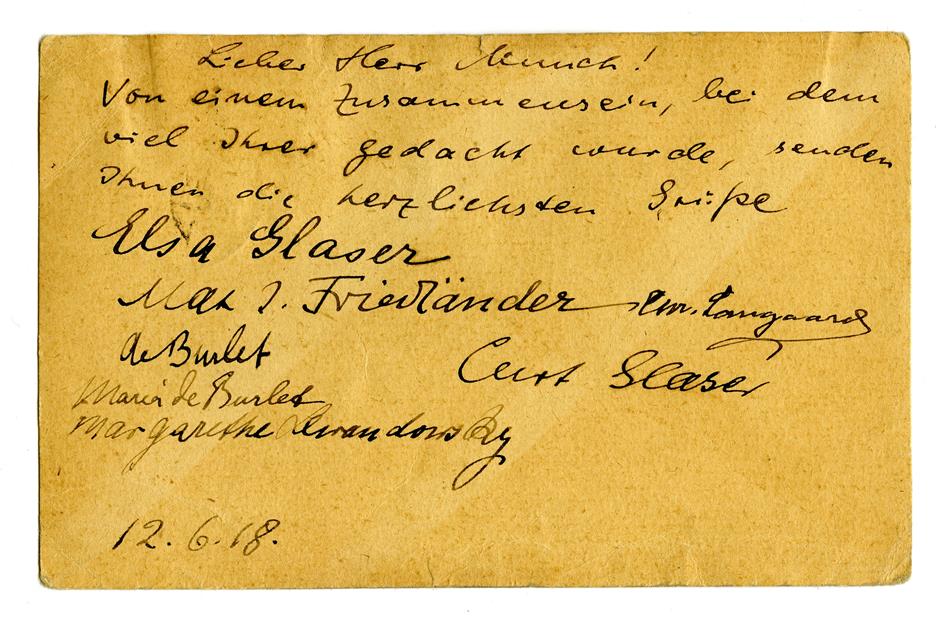 Lieber Herr Munch!
Von einem Zusammensein, bei dem
viel Ihrer gedacht wurde, senden
Ihnen die herzlichsten Grüße
Elsa Glaser
Max J. Friedländer
de Burlet
Curt Glaser
Marie de Burlet
Margarethe Lewandowsky
12.6.18.